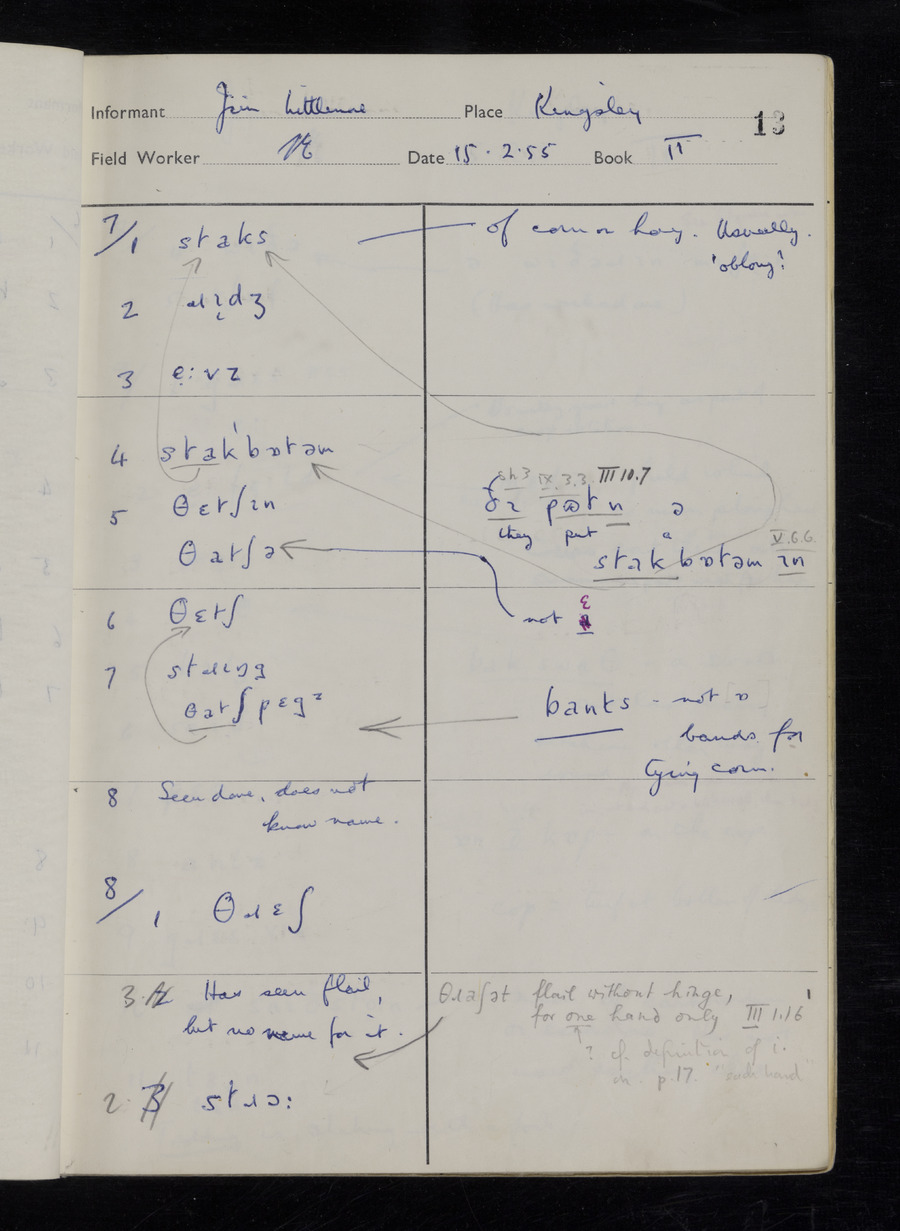 Informant Jim Littlemore Place Kingsley 13
Field Worker Date 15.2.55 Book II
7/1 staks of corn or hay. Usually
'oblong'.
2 ɹɪdʒ
3 e̞:vz
4 stak'bɒtəm
sh3 IX.3.3. III 10.7
5 θɛtʃɪn ðɪ pɒtn ə
they put a
θatʃə stakbɒtəm ɪn V.6.6.
6 θɛtʃ not ɛ
7 stɹɪŋg
θatʃpɛgz banks - not
bands for
tying corn.
8 Seen done, does not
know name.
8/1 θɹɛʃ
3. Has seen flail, θɹaʃət flail without hinge,
but no name for it. for one hand only III 1.16
? cf. definition of i.
on p.17. "each hand"
2. stɹɔ: